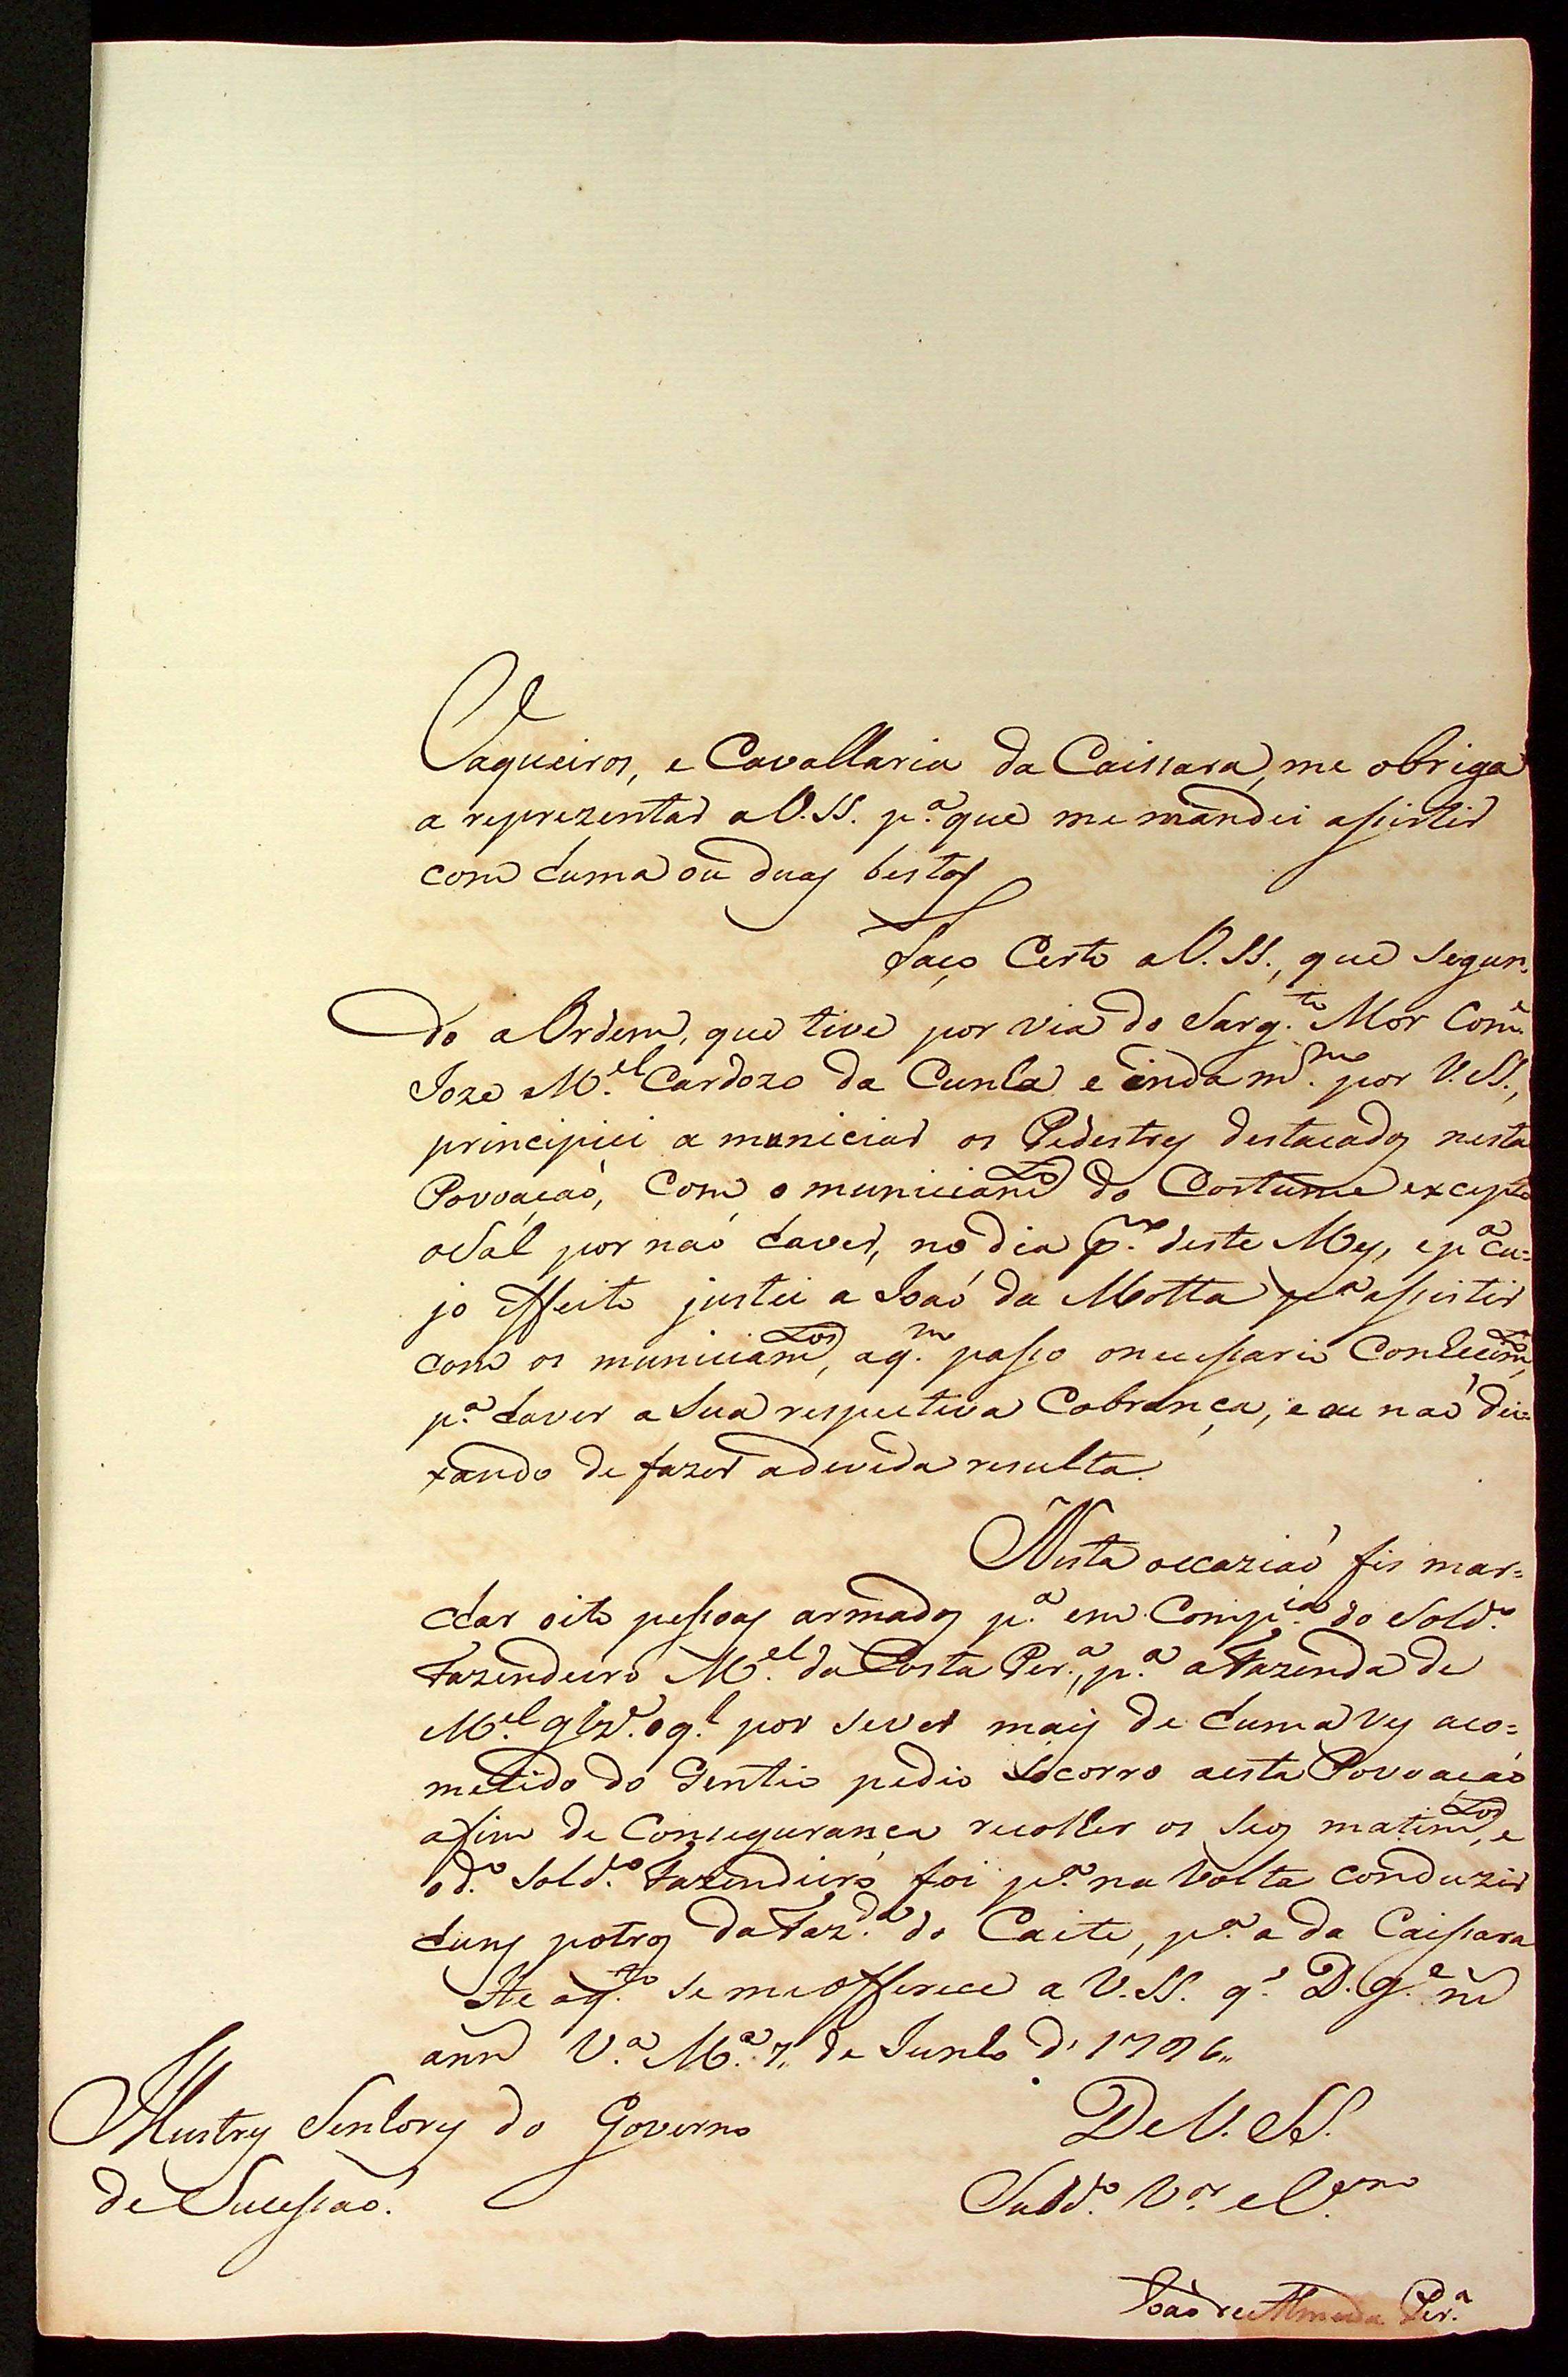 Vaqueiros, e Cavallaria da Caissara, me obriga
a reprezentar a V.SS. p.ª que me mandei assistir
com huma ou duas bestas
Faço Certo a V.SS., que segun-
do a Ordem, que tive por via do Sarg.to Mor Com.e
Joze M.el Cardozo da Cunha e inda m.mo por V.SS.,
principiei a municiar os Pedestres destacados nesta
Povoaçaó, Com o municiam.to do Costume excepto
o Sal por naó haver, no dia pr.º deste Mez, e p.ª cu-
jo effeito justei a Joaó da Motta p.ª assistir
com os municiam.tos, a q.m passo o necessario Conhecim.to,
p.ª haver a Sua respectiva Cobrança, e eu naó dei-
xando de fazer a devida resulta.
Nesta occaziaó fis mar-
char oito pessoas armadas p.ª em Comp.ia do Sold.º
Fazendeiro M.el da Costa Per.ª, p.ª a Fazenda de
M.el Glz.' o q.l por se ver mais de huma vez aco-
metido do Gentio pedio Socorro a esta Povoaçaó
afim de Com segurança recolher os seos matim.tos, e
o d.º Sold.º Fazendeiro foi p.ª na Volta conduzir
huns potros da Faz.da do Caite, p.ª a da Caissara
He o q.to se me offerece a V.SS. q.' D. g.e m.s
ann.s V.ª M.ª 7,, de Junho d' 1796,,
De V. SS.
Illustres Senhores do Governo
de Sucessaó.
Subd.º V.or e V.mo
Joaó de Almeida Per.ª